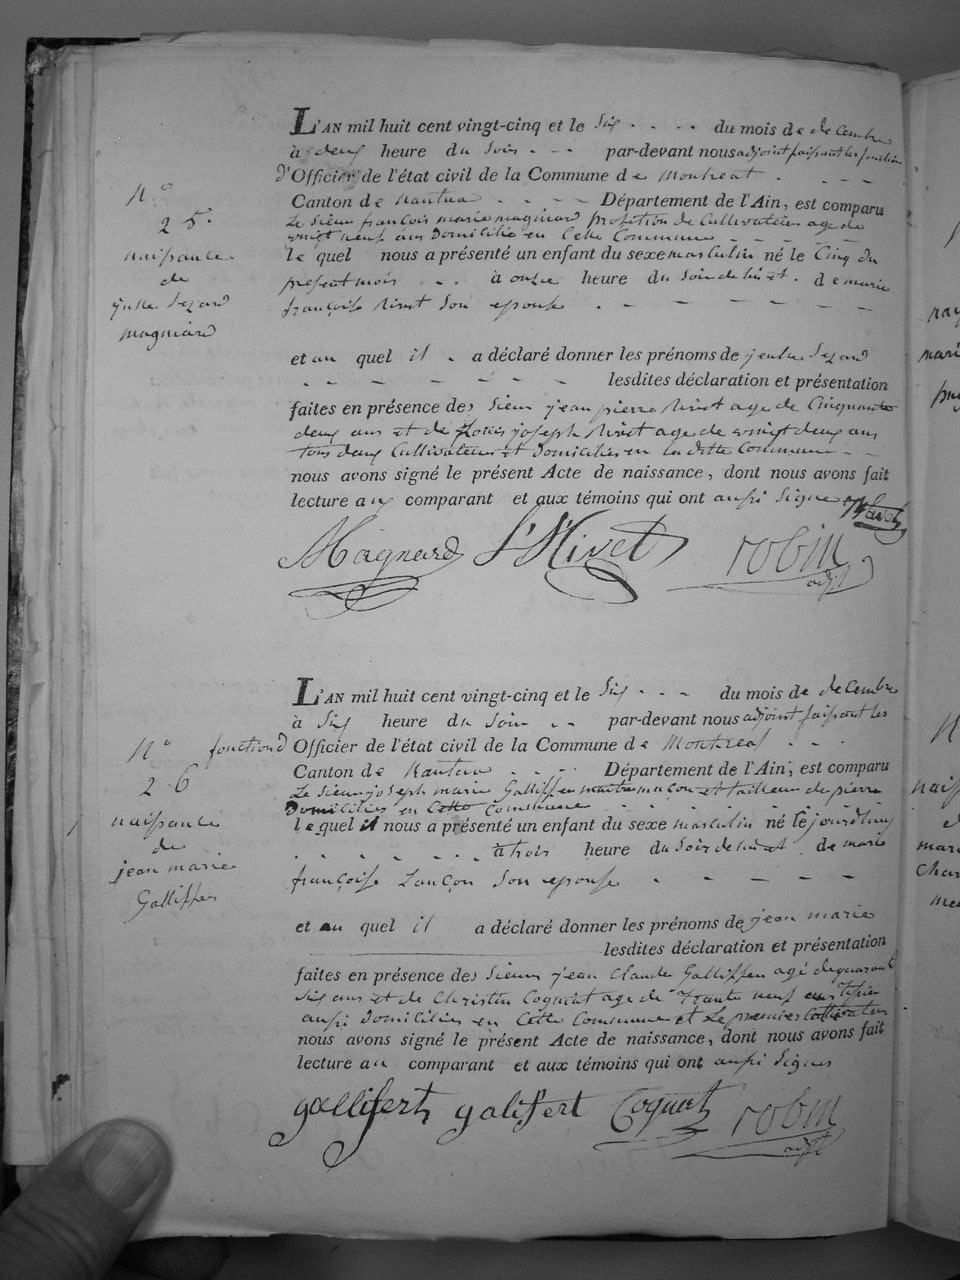 L'AN mil huit cent vingt-cinq et le Six du mois de decembre
à deux heure du Soir par-devant nous adjoint faissant les fonction
d'Officier de l'état civil de la Commune de Montreal
N.º
25.
naissance
de
magniard
Canton de Nantua Département de l'Ain, est comparu
Le Sieur françois marie magniard profition de Cultivateur age de
vingt neuf ans Domicilié en Cette Commune
le quel nous a présenté un enfant du sexe masculin né le Cinq du
present mois à onze heure du Soir de lui et de marie
françoise Nivet Son epouse
et au quel il a déclaré donner les prénoms de
lesdites déclaration et présentation
faites en présence des Sieur jean pierre Nivet age de Cinquante
deux ans et de Louis joseph Nivet age de vingt deux ans
tous deux Cultivateurs et Domiciliés en la ditte Commune
nous avons signé le présent Acte de naissance, dont nous avons fait
lecture aux comparant et aux témoins qui ont aussi Signe
Magnard Nivet robin
adjt
L'AN mil huit cent vingt-cinq et le Six du mois de decembre
à Six heure du Soir par-devant nous adjoint faissant les
fonctiond Officier de l'état civil de la Commune de Montreal
N.º
26
naissance
de
jean marie
Galliffer
Canton de Nantua Département de l'Ain, est comparu
Le Sieur joseph marie Galliffer maitre maçon et tailleur de pierre
Domiciliés en Cette Commune
le quel il nous a présenté un enfant du sexe masculin né le jourd'huy
à trois heure du Soir de lui et de marie
françoise Lançon Son epouse
et au quel il a déclaré donner les prénoms de jean marie
lesdites déclaration et présentation
faites en présence des Sieurs jean Claude Galliffer agé de quarante
Six ans et de Christin Cognat age de trante neuf ans
aussi Domiciliés en Cette Commune et Le premier Cultivateur
nous avons signé le présent Acte de naissance, dont nous avons fait
lecture au comparant et aux témoins qui ont aussi Signes
gallifert galifert Cognat robin
adjt